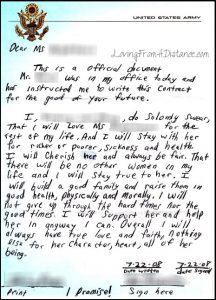 UNITED STATES ARMY
LovingFromADistance.com
Dear Ms
This is a official document
Mr. was in my office today and
has instructed me to write this Contract
for the good of your future.
I, , do Solomly Swear,
That i will Love Ms for the
rest of my life. And I will stay with her
for richer or poorer, Sickness and health
I will Cherish her and always be fair. That
there will be no other women in my
life and I will stay true to her. I
will build a good family and raise them in
good health, physically and Morally. I will
not give up through the hard times nor the
good times. I will Support her and help
her in anyway I can. Overall I will
always have true love and for nothing
else for her Character, heart, all of her
being.
7-22-08 7-23-08
Date wrote Date Signed
Print I Promise! Sign here